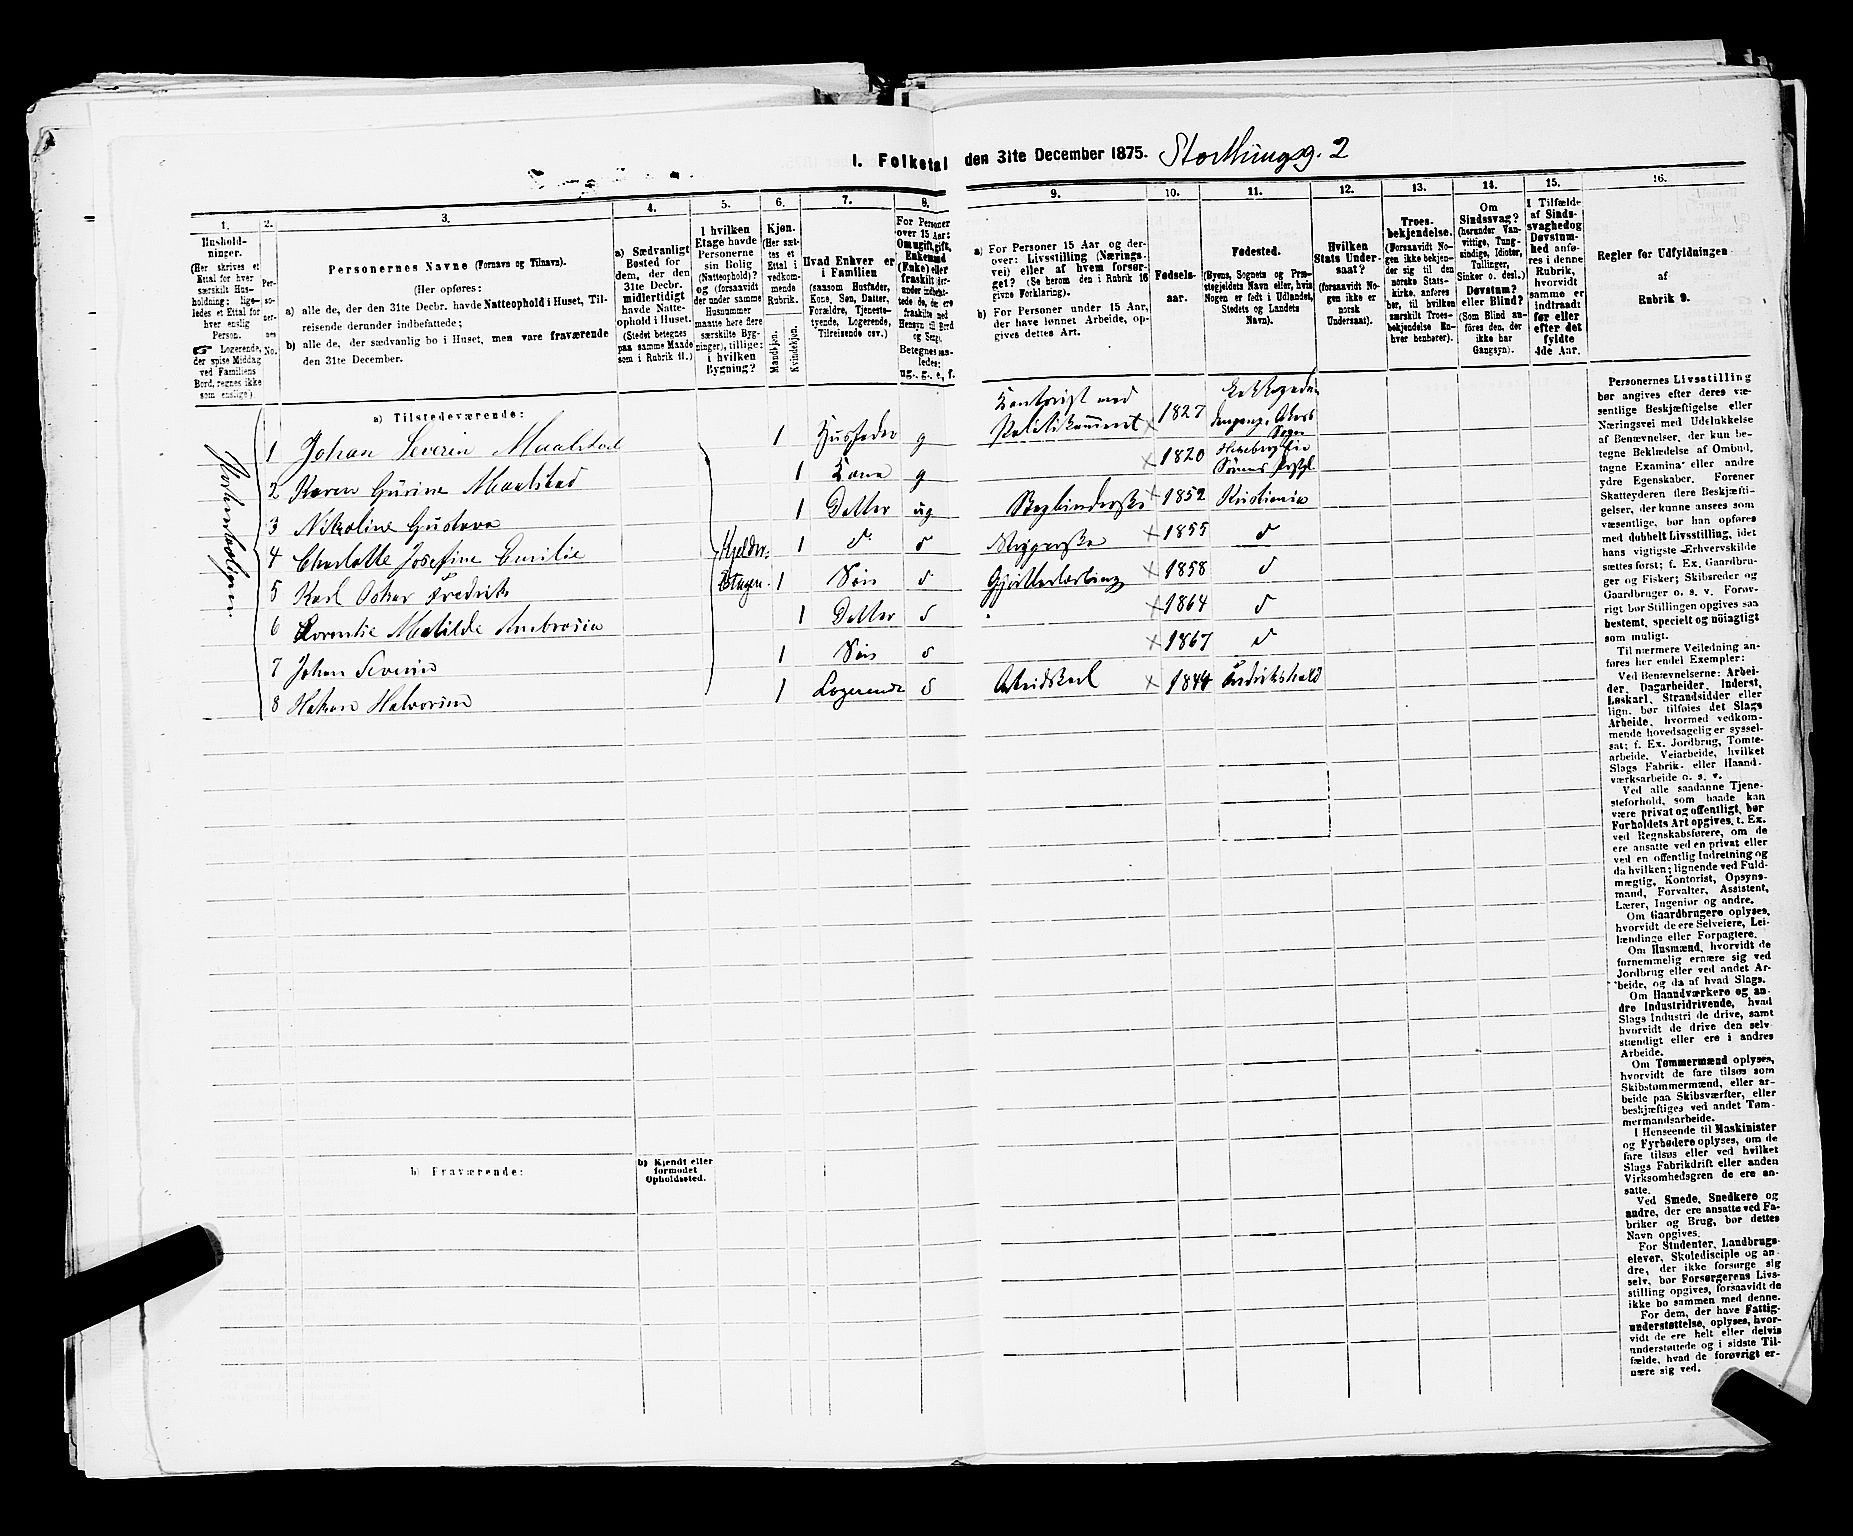 I. Folketal den 31te December 1875. Storthingsg. 2
1.
Hushold-
ninger.
(Her skrives et
Ettal for hver
særskilt Hus-
holdning; lige-
ledes et Ettal for
hver enslig
Person.
☛ Logerende,
der spise Middag
ved Familiens
Bord, regnes ikke
som enslige)
2.
Per-
so-
ner-
nes
No.
3.
Personernes Navne (Fornavn og Tilnavn).
(Her opføres:
a) alle de, der den 31te Decbr. havde Natteophold i Huset, Til-
reisende derunder indbefattede;
b) alle de, der sædvanlig bo i Huset, men vare fraværende
den 31te December.
4.
a) Sædvanligt
Bosted for
dem, der den
31te Decbr.
midlertidigt
havde Natte-
ophold i Huset.
(Stedet betegnes
paa samme Maade
som i Rubrik 11.)
5.
I hvilken
Etage havde
Personerne
sin Bolig
(Natteophold)?
og (forsaavidt
der under samme
Husnummer
maatte høre flere
særskilte Byg-
ninger), tillige:
i hvilken
Bygning?
6.
Kjøn.
(Her sæt-
tes et
Ettal i
vedkom-
mende
Rubrik.
Mandkjøn.
Kvindekjøn.
7.
Hvad Enhver er
i Familien
(saasom Husfader,
Kone, Søn, Datter,
Forældre, Tjeneste-
tyende, Logerende,
Tilreisende osv.)
8.
For Personer
over 15 Aar:
Om ugift, gift,
Enkemand
(Enke) eller
fraskilt (her-
under indbefat-
tede de, der ere
fraskilte med
Hensyn til Bord
og Seng).
Betegnes saa-
ledes:
ug., g., e., f.
9.
a) For Personer 15 Aar og der-
over: Livsstilling (Nærings-
vei) eller af hvem forsør-
get? (Se herom den i Rubrik 16
givne Forklaring).
b) For Personer under 15 Aar,
der have lønnet Arbeide, op-
gives dettes Art.
10.
Fødsels-
aar.
11.
Fødested.
(Byens, Sognets og Præ-
stegjeldets Navn eller, hvis
Nogen er født i Udlandet,
Stedets og Landets
Navn).
12.
Hvilken
Stats Under-
saat?
(forsaavidt No-
gen ikke er
norsk
Undersaat).
13.
Troes-
bekjendelse.
(Forsaavidt No-
gen ikke bekjen-
der sig til den
norske Stats-
kirke, anføres
her, til hvilken
særskilt Troes-
bekjendelse En-
hver henhører).
14.
Om
Sindssvag?
(herunder Van-
vittige, Tung-
sindige, Idioter,
Tullinger,
Sinker o. desl.)
Døvstum?
eller Blind?
(Som Blind an-
føres den, der
ikke har
Gangsyn).
15.
I Tilfælde
af Sinds-
svaghed og
Døvstum-
hed anfø-
res i denne
Rubrik,
hvorvidt
samme er
indtraadt
før eller
efter det
fyldte
4de Aar.
16.
Regler for Udfyldningen
af
Rubrik 9.
a) Tilstedeværende:
1 Johan Severin Maalstad 1 Husfader g Kontorist ved Politikammeret 1827
2 Karen Gurine Maalstad 1 Kone g 1820
3 Nikoline Gustava 1 Datter ug Bogbinderske 1852 Kristiania
4 Charlotte Josefine Emilie Kjelder- 1 d° Strygerske 1855 d
5 Karl Oskar Fredrik Etagen. 1 Søn Gjørtlerlærling 1858 d
6 Lorentse Matilde Ambrosia 1 Datter 1864 d
7 Johan Severin 1 Søn 1867 d
8 Hakon Halvorsen 1 Logerende Arbeidskarl 1844 Fredrikshald
b) Fraværende:
b) Kjendt eller
formodet
Opholdssted.
Personernes Livsstilling
bør angives efter deres væ-
sentlige Beskjæftigelse eller
Næringsvei med Udelukkelse
af Benævnelser, der kun be-
tegne Beklædelse af Ombud,
tagne Examina eller andre
ydre Egenskaber. Forener
Skatteyderen flere Beskjæfti-
gelser, der kunne ansees som
væsentlige, bør han opføres
med dobbelt Livsstilling, idet
hans vigtigste Erhvervskilde
sættes først; f. Ex. Gaardbru-
ger og Fisker; Skibsreder og
Gaardbruger o. s. v. Forøv-
rigt bør Stillingen opgives saa
bestemt, specielt og nøiagtigt
som muligt.
Til nærmere Veiledning an-
føres her endel Exempler:
Ved Benævnelserne: Arbei-
der, Dagarbeider, Inderst,
Løskarl, Strandsidder eller
lign. bør tilføies det Slags
Arbeide, hvormed vedkom-
mende hovedsagelig er syssel-
sat; f. Ex. Jordbrug, Tomte-
arbeide, Veiarbeide, hvilket
Slags Fabrik- eller Haand-
værksarbeide o. s. v.
Ved alle saadanne Tjene-
steforhold, som baade kan
være privat og offentligt, bør
Forholdets Art opgives, t. Ex.
ved Regnskabsførere, om de
ere ansatte ved en privat eller
ved en offentlig Indretning og
da hvilken; lignende ved Fuld-
mægtig, Kontorist, Opsyns-
mand, Forvalter, Assistent,
Lærer, Ingeniør og andre.
Om Gaardbrugere oplyses,
hvorvidt de ere Selveiere, Lei-
lændinge eller Forpagtere.
Om Husmænd, hvorvidt de
fornemmelig ernære sig ved
Jordbrug eller ved andet Ar-
beide, og da af hvad Slags.
Om Haandværkere og an-
dre Industridrivende, hvad
Slags Industri de drive, samt
hvorvidt de drive den selv-
stændigt eller ere i andres
Arbeide.
Om Tømmermænd oplyses,
hvorvidt de fare tilsøs som
Skibstømmermænd, eller ar-
beide paa Skibsværfter, eller
beskjæftiges ved andet Tøm-
mermandsarbeide.
I Henseende til Maskinister
og Fyrbødere oplyses, om de
fare tilsøs eller ved hvilket
Slags Fabrikdrift eller anden
Virksomhedsgren de ere an-
satte.
Ved Smede, Snedkere og
andre, der ere ansatte ved Fa-
briker og Brug, bør dettes
Navn opgives.
For Studenter, Landbrugs-
elever, Skoledisciple og an-
dre, der ikke forsørge sig
selv, bør Forsørgerens Livs-
stilling opgives, forsaavidt de
ikke bo sammen med denne.
For dem, der have Fattig-
understøttelse, oplyses, hvor-
vidt de ere helt eller delvis
understøttede og i sidste Til-
fælde, hvad de forøvrigt er-
nære sig ved.